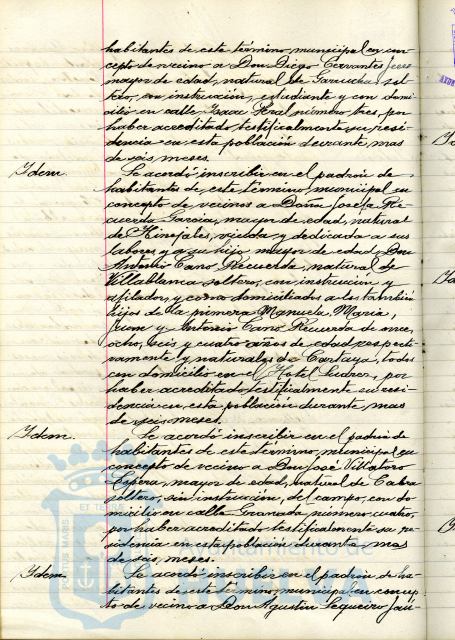 habitantes de este término municipal en con-
cepto de vecino a Don Diego Cervantes
mayor de edad, natural de Garrucha sol-
tero, con instrucción, estudiante y con domi-
cilio en calle Isaac Peral número tres, por
haber acreditado testificalmente su resi-
dencia en esta población durante mas
de seis meses.
Idem. Se acordó inscribir en el padrón de
habitantes de este término municipal en
concepto de vecinos a Doña Josefa Re-
cuerda Garcia, mayor de edad, natural
de Hinojales, viuda y dedicada a sus
labores y a su hijo mayor de edad, Don
Antonio Cano Recuerda, natural de
Villablanca soltero, con instrucción y
afilador, y como domiciliados a los también
hijos de la primera Manuela, Maria,
Juan y Antonio Cano Recuerda de once,
ocho, seis y cuatro años de edad respecti-
vamente y naturales de Cartaya, todos
con domicilio en el Hotel Suarez, por
haber acreditado testificalmente su resi-
dencia en esta población durante mas
de seis meses.
Idem. Se acordó inscribir en el padrón de
habitantes de este término municipal en
concepto de vecino a Don José Villatoro
mayor de edad, natural de Cabra
soltero, sin instrucción, del campo, con do-
micilio en calle Granada número cuatro,
por haber acreditado testificalmente su re-
sidencia en esta población durante mas
de seis meses.
Idem. Se acordó inscribir en el padrón de ha-
bitantes de este término municipal en concep-
to de vecino a Don Agustin Sequeiro
Ayuntamiento de